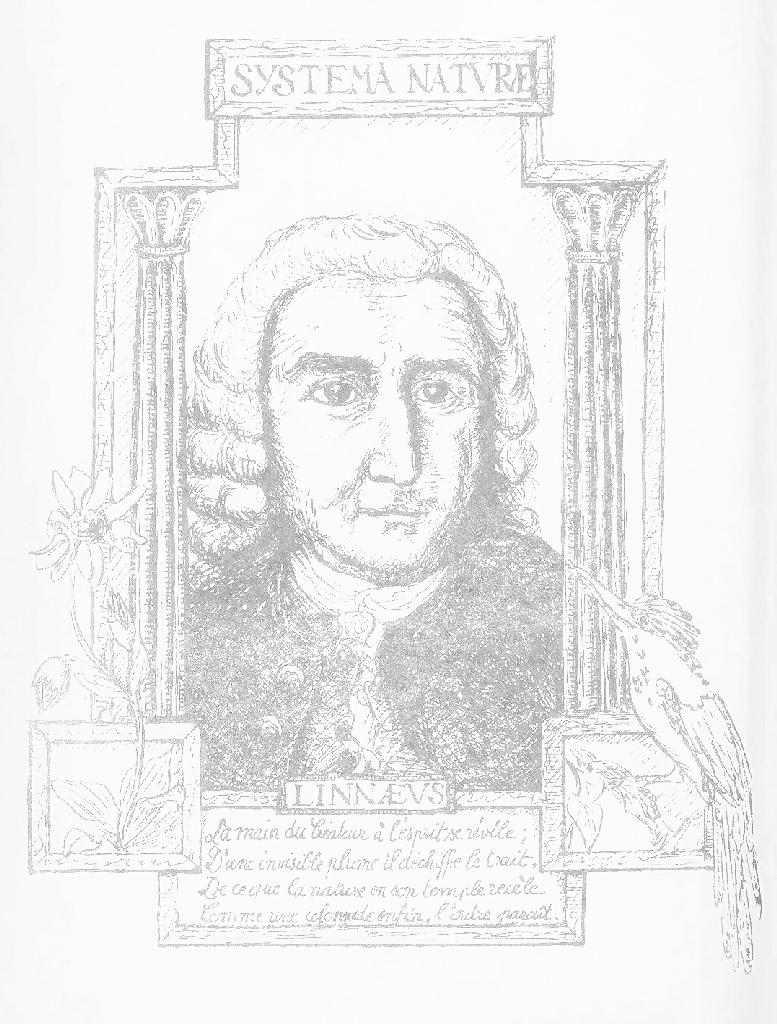 SYSTEMA NATVRE
LINNÆVS
La main du Créateur à l'esprit se révèle ;
D'une invisible plume il déchiffre le trait.
De ce que la nature en son temple recèle
Comme une colonnade enfin, l'ordre paraît.